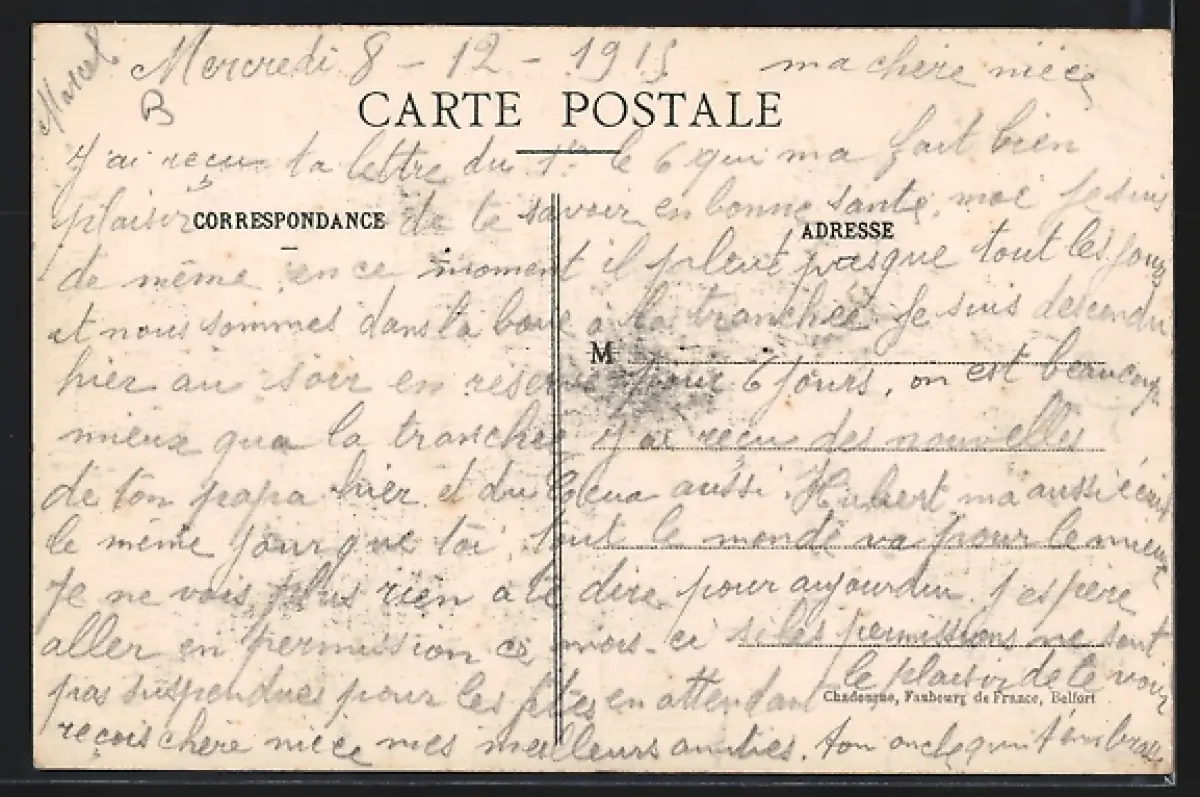 Marcel
Mercredi 8 - 12 - 1915 ma chere niece
B
CARTE POSTALE
J'ai recu ta lettre du 1er le 6 qui ma fait bien
plaisir de te savoir en bonne santé, moi Je suis
CORRESPONDANCE
ADRESSE
de même, en ce moment il pleut presque tout les jours
et nous sommes dans la boue à la tranchée. Je suis descendu
M
hier au soir en reserve pour 6 jours, on est beaucoup
mieux que la tranchée J'ai reçu des nouvelles
de ton papa hier et du aussi. Hubert ma aussi écrit
le même jour que toi, tout le monde va pour le mieux
Je ne vois plus rien a te dire pour aujourdui. J'espère
aller en permission ce mois-ci si les permissions ne sont
pas suspendues pour les fêtes en attendant le plaisir de te voir
Chadourne, Faubourg de France, Belfort
reçois chère niece mes meilleurs amitiés. ton oncle qui t'embrasse